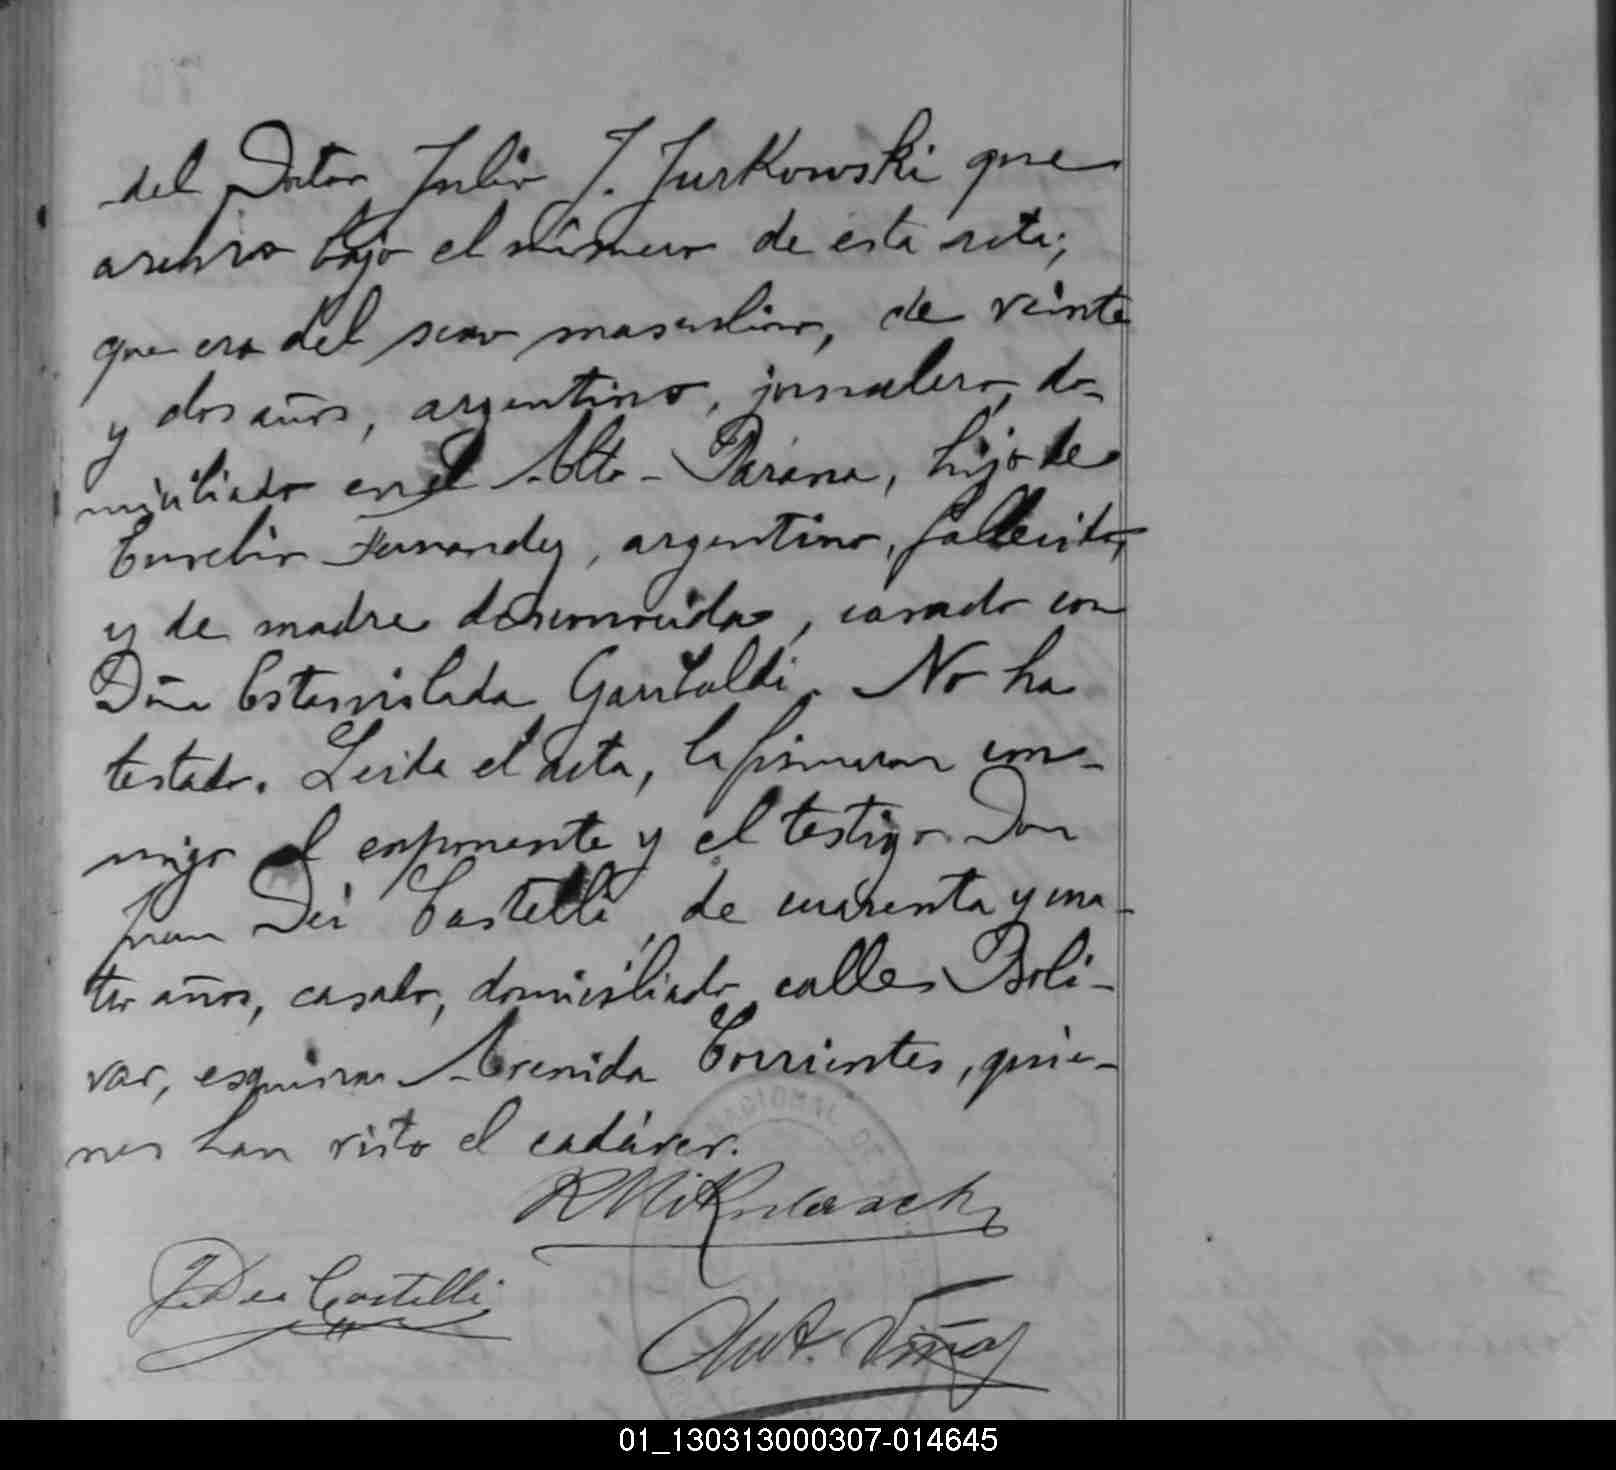 del Doctor Julio J. Jurkowski que
archivo bajo el número de esta acta;
que era del sexo masculino, de veinte
y dos años, argentino, jornalero, do-
miciliado en el Alto-Parana, hijo de
Eurelio Fernandez, argentino, fallecido,
y de madre desconocida, casado con
Doña Estanislada Garibaldi. No ha
testado. Leida el acta, la firmaron con-
migo el exponente y el testigo Don
Juan Dei Castelli, de cuarenta y cua-
tro años, casado, domiciliado calles Boli-
var, esquina Avenida Corrientes, quie-
nes han visto el cadáver.
J Dei Castelli
Ant. Viñas
NACIONAL DE
01_130313000307-014645